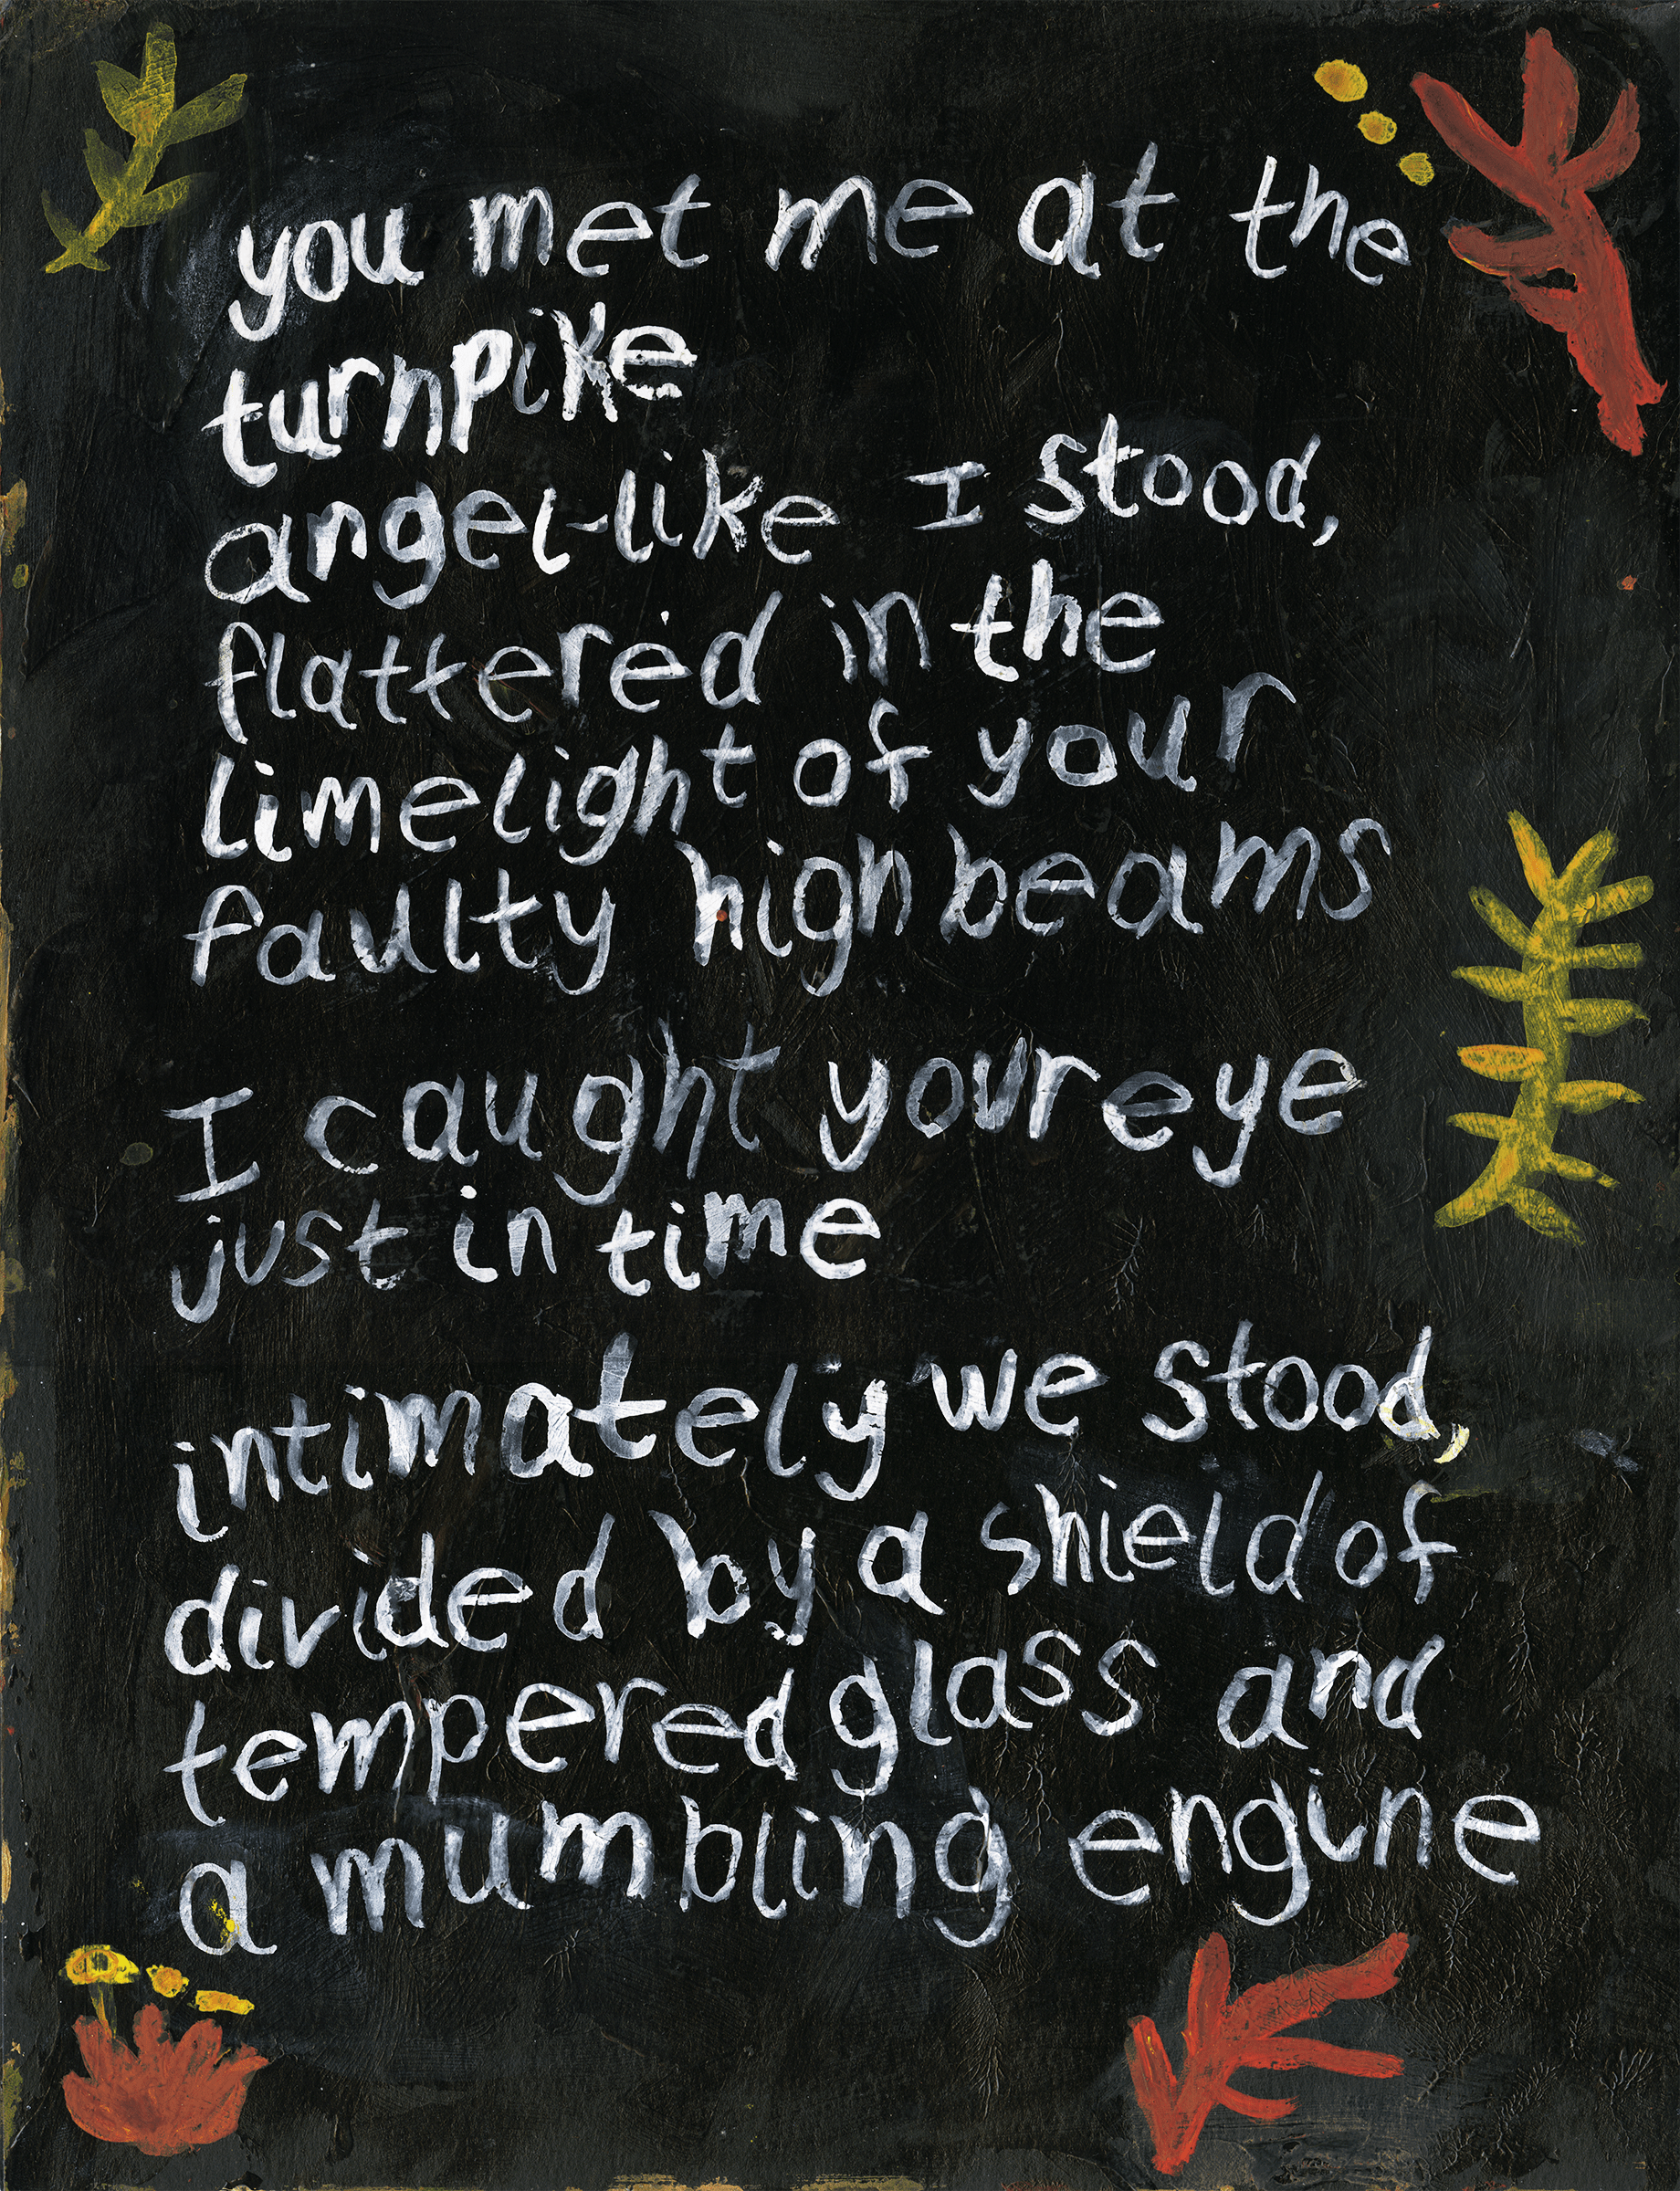 you met me at the
turnpike
angel-like I stood,
flattered in the
limelight of your
faulty high beams
I caught your eye
just in time
intimately we stood,
divided by a shield of
tempered glass and
a mumbling engine